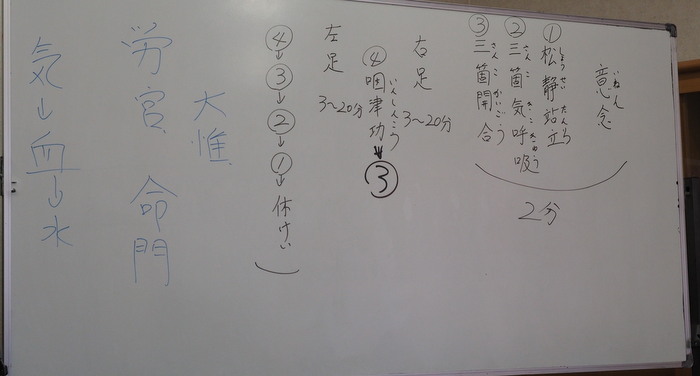 意念
いねん
①松静站立
しょうせいたんりつ
②三箇気呼吸
さんこきこきゅう
③三箇開合
さんこかいごう
2分
右足 3〜20分
④咽津功
いんしんこう
↓
③
左足 3〜20分
④→③→②→①→休けい
大惟
労宮 命門
気→血→水